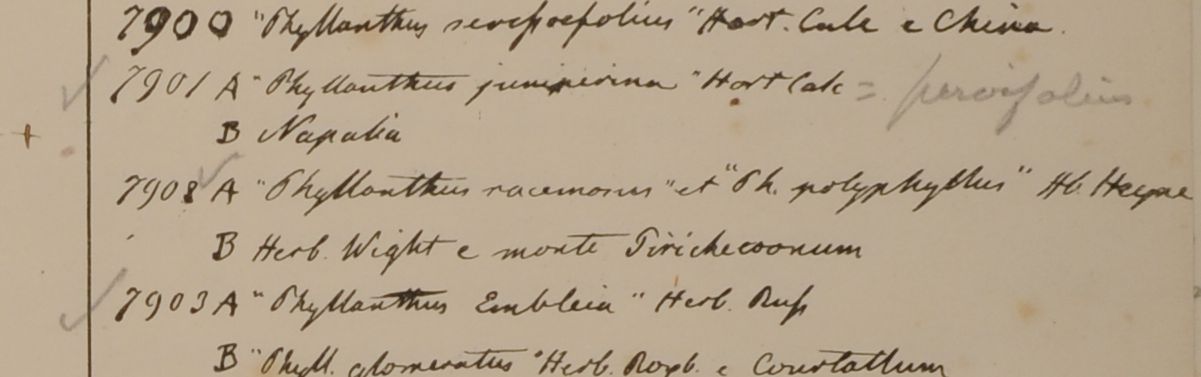 7900 "Phyllanthus serpyfolius" Hort. Calc e China.
7901 A "Phyllanthus juniperina" Hort Calc =
B Napalia
7902 A "Phyllanthus racemosus" et "Ph. polyphyllus" Hb. Heyne
B Herb. Wight e monte
7903 A "Phyllanthus Embleia" Herb. Russ
B "Phyll. glomeratus" Herb. Roxb. e Courtallum